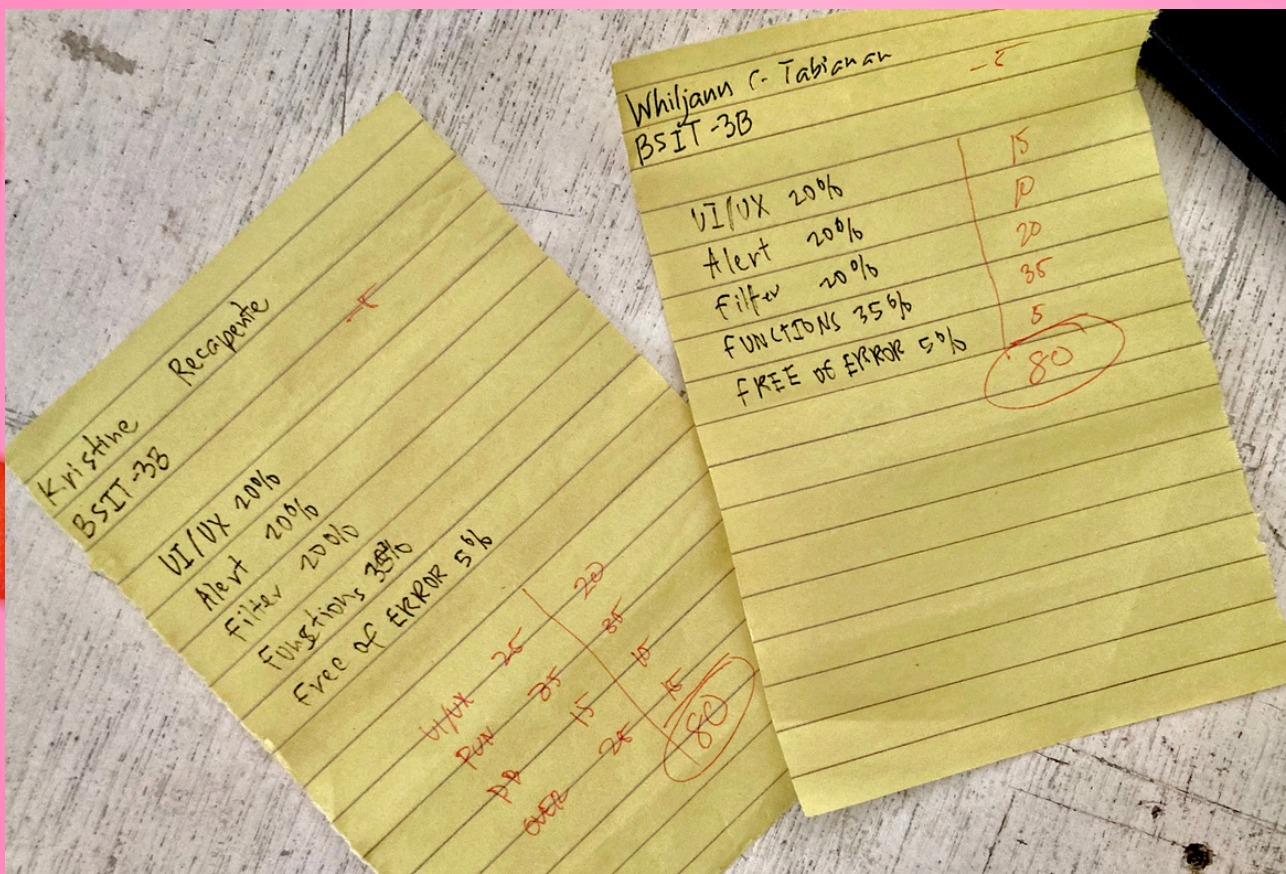 Kristine Recapente
BSIT-3B
UI/UX 20%
Alert 20%
Filter 20%
Functions 35%
Free of ERROR 5%
UI/UX 25 20
FUN 35 35
15 10
OVER 25 15
80
Whiljann C. Tabianan
-5
BSIT-3B
UI/UX 20% 15
Alert 20% 10
Filter 20% 20
FUNCTIONS 35% 35
FREE OF ERROR 5% 5
80